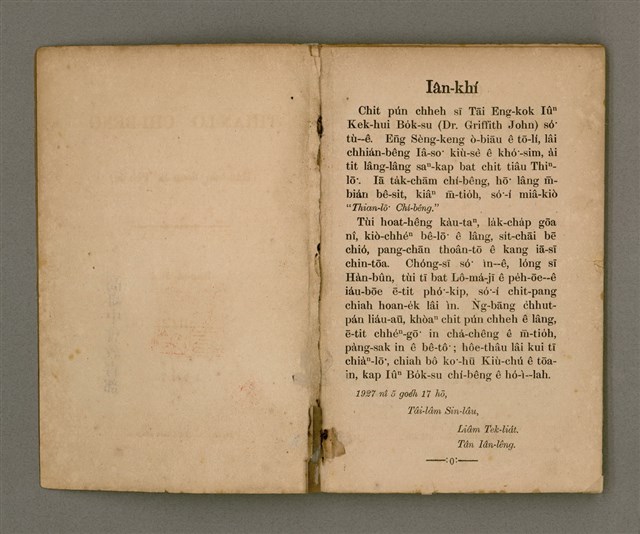 Iân-khí
Chit pún chheh sī Tāi Eng-kok Iûⁿ
Kek-hui Bo̍k-su (Dr. Griffith John) só͘
tù--ê. Eīⁿg Sèng-keng ò-biāu ê tō-lí, lâi
chhián-bêng Iâ-so͘ kiù-sè ê khó͘-sim, ài
tit lâng-lâng saⁿ-kap bat chit tiâu Thiⁿ-
lō͘. Iā ta̍k-chām chí-bêng, hō͘ lâng m̄-
bián bê-sit, kiâⁿ m̄-tio̍h, só͘-í miâ-kiò
“Thian-lō͘ Chí-bêng.”
Tùi hoat-hêng kàu-taⁿ, la̍k-cha̍p gōa
nî, kiò-chhéⁿ bê-lō͘ ê lâng, si̍t-chāi bē
chió, pang-chān thoân-tō ê kang iā-sī
chin-tōa. Chóng-sī só͘ ìn--ê, lóng sī
Hàn-bûn, tùi tī bat Lô-má-jī ê pe̍h-ōe--ê
iáu-bōe ē-tit phó͘-ki̍p, só͘-í chit-pang
chiah hoan-e̍k lâi ìn. Ǹg-bāng chhut-
pán liáu-āu, khòaⁿ chit pún chheh ê lâng,
ē-tit chhéⁿ-gō͘ in chá-chêng ê m̄-tio̍h,
pàng-sak in ê bê-tô͘; hôe-thâu lâi kui tī
chiàⁿ-lō͘, chiah bô ko͘-hū Kiù-chú ê tōa-
in, kap Iûⁿ Bo̍k-su chí-bêng ê hó-ì--lah.
1927 nî 5 goe̍h 17 hō,
Tâi-lâm Sin-lâu,
Liâm Tek-lia̍t.
Tân Iân-lêng.
:0: